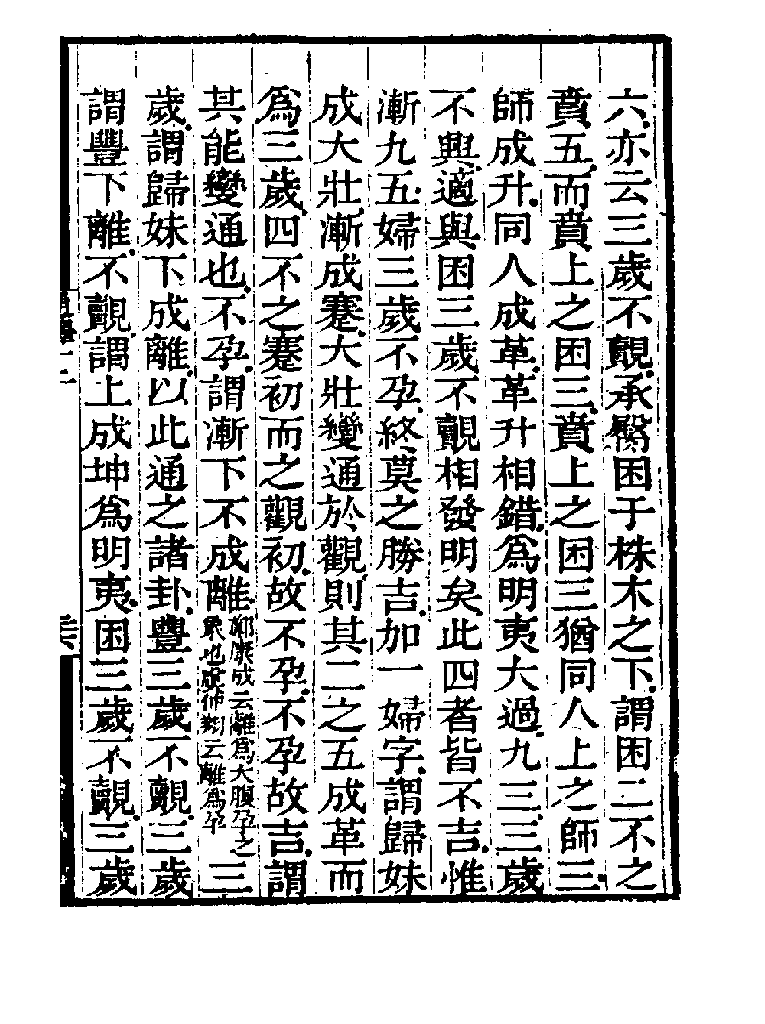 六亦云三歲不覿承臀困于株木之下謂困二不之
賁五而賁上之困三賁上之困三猶同人上之師三
師成升同人成革革升相錯爲明夷大過九三三歲
不興適與困三歲不覿相發明矣此四者皆不吉惟
漸九五婦三歲不孕終莫之勝吉加一婦字謂歸妹
成大壯漸成蹇大壯變通於觀則其二之五成革而
爲三歲四不之蹇初而之觀初故不孕不孕故吉謂
其能變通也不孕謂漸下不成離鄭康成云離爲大腹孕之象也虞仲翔云離爲孕三
歲謂歸妹下成離以此通之諸卦豐三歲不覿三歲
謂豐下離不覿謂上成坤爲明夷困三歲不覿三歲